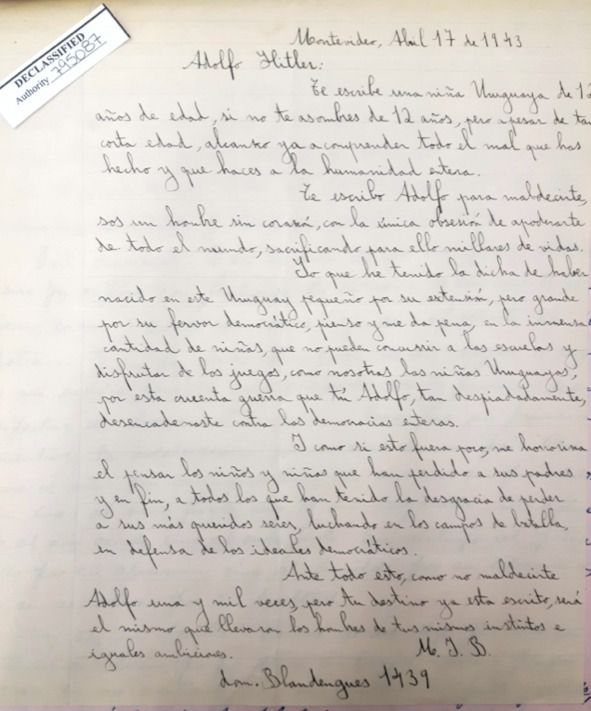 DECLASSIFIED
Authority 795087
Montevideo, Abril 17 de 1943
Adolfo Hitler:
Te escribe una niña Uruguaya de 12
años de edad, si no te asombres de 12 años, pero apesar de tan
corta edad, alcanzo ya a comprender todo el mal que has
hecho y que haces a la humanidad entera.
Te escribo Adolfo para maldecirte,
sos un hombre sin corazón, con la única obsesión de apoderarte
de todo el mundo, sacrificando para ello millares de vidas.
Yo que he tenido la dicha de haber
nacido en este Uruguay pequeño por su extensión, pero grande
por su fervor democrático, pienso y me da pena, en la inmensa
cantidad de niñas, que no pueden concurrir a las escuelas y
disfrutar de los juegos, como nosotras las niñas Uruguayas,
por esta cruenta guerra que tú Adolfo, tan despiadadamente,
desencadenaste contra las democracias enteras.
I como si esto fuera poco, me horroriza
el pensar los niños y niñas que han perdido a sus padres
y en fin, a todos los que han tenido la desgracia de perder
a sus más queridos seres, luchando en los campos de batalla,
en defensa de los ideales democráticos.
Ante todo esto, como no maldecirte
Adolfo una y mil veces, pero tu destino ya esta escrito, será
el mismo que llevaron los hombres de tus mismos instintos e
iguales ambiciones. M. J. B.
dom. Blandengues 1439